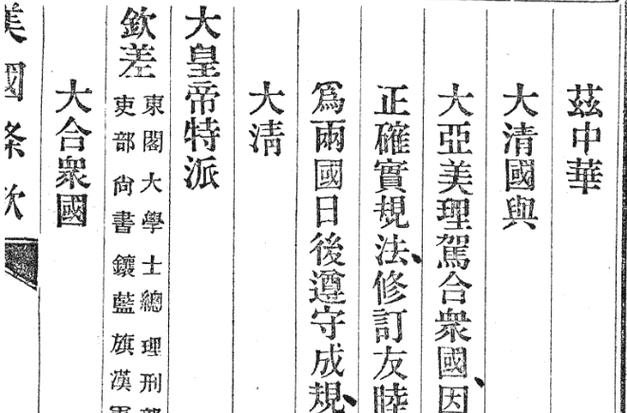 茲中華
大清國與
大亞美理駕合衆國、因
正確實規法、修訂友睦
爲兩國日後遵守成規、
大清
大皇帝特派
欽差
東閣大學士總理刑部
吏部尚書鑲藍旗漢軍
大合衆國
美國條款